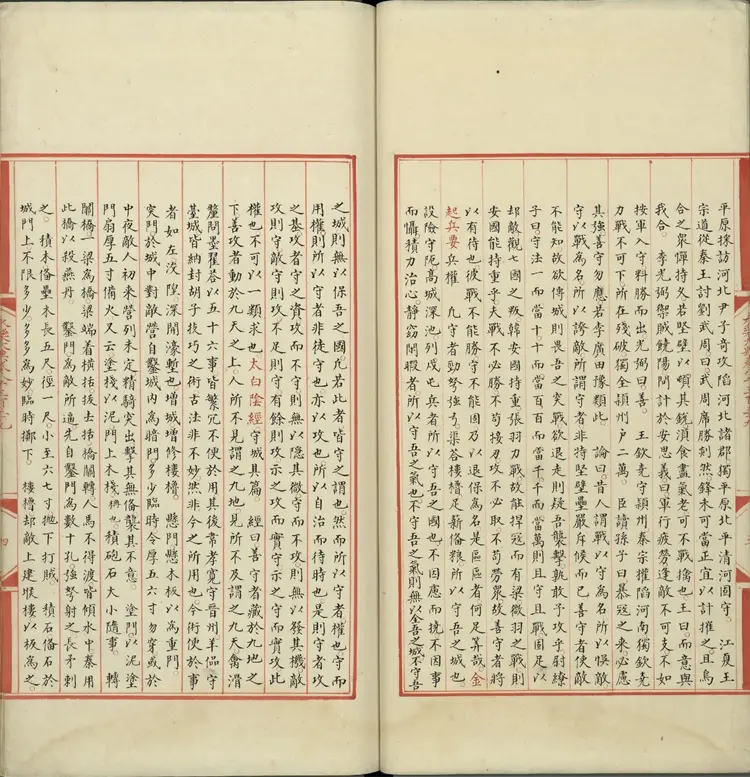 平原採訪河北尹子奇攻陷河北諸郡獨平原北平清河固守。江夏王
宗道從秦王討劉武周曰武周席勝剡然鋒未可當正宜以計摧之且烏
合之衆憚持久若堅壁以頓其銳湏食盡氣老可不戰擒也王曰而意與
我合。李光弼禦賊饒陽開計於安思義曰軍行疲勞逢敵不可支不如
按軍入守料勝而出光弼曰善 王欽堯守潁州秦宗權陷河南獨欽堯
力戰不可下所在殘破獨全潁州户二萬。臣讀孫子曰暴寇之来必慮
其強善守勿應若李廣田豫類此 論曰昔人謂戰以守為名所以悞敵
守以戰為名所以誇敵所謂守者非持堅壁壘嚴斥候而已善守者使敵
不能知故欲傳城則畏吾之突戰欲退走則疑吾襲擊孰敢予攻乎尉繚
子曰守法一而當十十而當百百而當千千而當萬則且守且戰固足以
却敵觀七國之叛韓安國持重張羽力戰故能捍寇而有梁微羽之戰則
安國能持重乎夫戰不必勝不苟接刃攻不必取不苟勞衆故善守者將
以有待也彼戰不能勝守不能固乃以退保為名是區區者何足筭哉金
起兵要兵權 凢守者勁弩強弓。渠荅樓櫓足薪偹粮所以守吾之城也
設險守阨高城深池列戍屯兵者所以守吾之國也不因應而撓不因事
而懾積力治心静窈閑暇者所以守吾之氣也不守吾之氣則無以全吾之城不守吾
之城則無以保吾之國凢若此者皆守之謂也然而所以守者權也守而
用權則所以守者非徒守也亦以攻也所以自治而待時也是則守者攻
之基攻者守之資攻而不守則無以隱其微守而不攻則無以發其機敵
攻則守敵守則攻攻不足則守有餘則攻示之攻而實守示之守而實攻此
權也不可以一類求也太白陰經守城具篇。經曰善守者藏於九地之
下善攻者動於九天之上人所不見謂之九地見所不及謂之九天禽滑
釐問墨翟荅以五十六事皆繁冗不便於用其後常孝寛守晉州羊偘守
䑓城皆納封胡子技巧之術古法非不妙然非今之所用也今術便於事
者如左浚隍。深開濠塹也增城增修樓櫓。懸門懸木板以為重門。
突門於城中對敵營自鑿城内為暗門多少臨時令厚五六寸勿穿或於
中夜敵人初来營列未定精騎突出擊其無偹襲其不意。塗門以泥塗
門扇厚五寸備火又云塗棧以泥門上木棧棚也。積砲石大小隨事。轉
關橋一梁為橋梁端着横栝拔去栝橋關轉人馬不得渡皆傾水中秦用
此橋以殺燕丹 鑿門為敵所逼先自鑿門為數十孔強弩射之長矛刺
之。積木偹壘木長五尺徑一尺小至六七寸抛下打賊。積石偹石於
城門上不限多少多多為妙臨時擲下。樓櫓却敵上建堠樓以板為之。